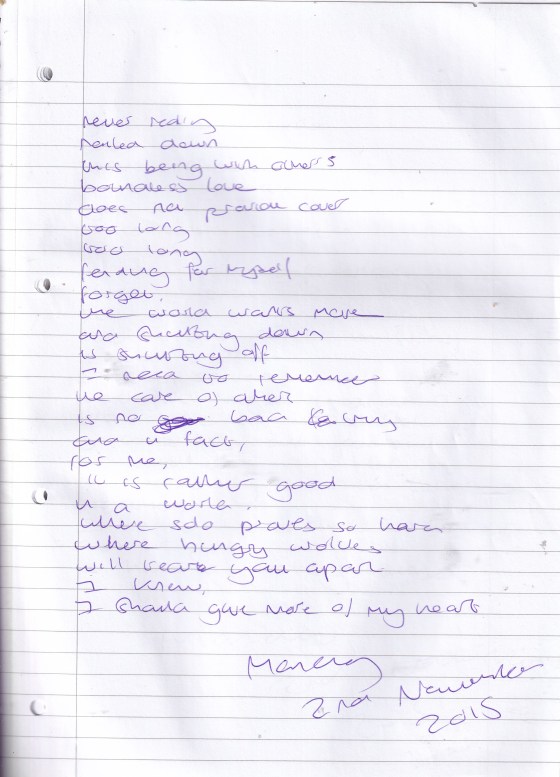 never really
nailed down
this being with others
boundless love
does not provide cover
too long
too long
fending for myself
forget.
the world wants more
and shutting down
is shutting off
I need to remember
the care of others
is no bad thing
and in fact,
for me,
it is rather good
in a world.
where solo proves so hard
where hungry wolves
will tear you apart
I know,
I should give more of my heart
2nd November
2015